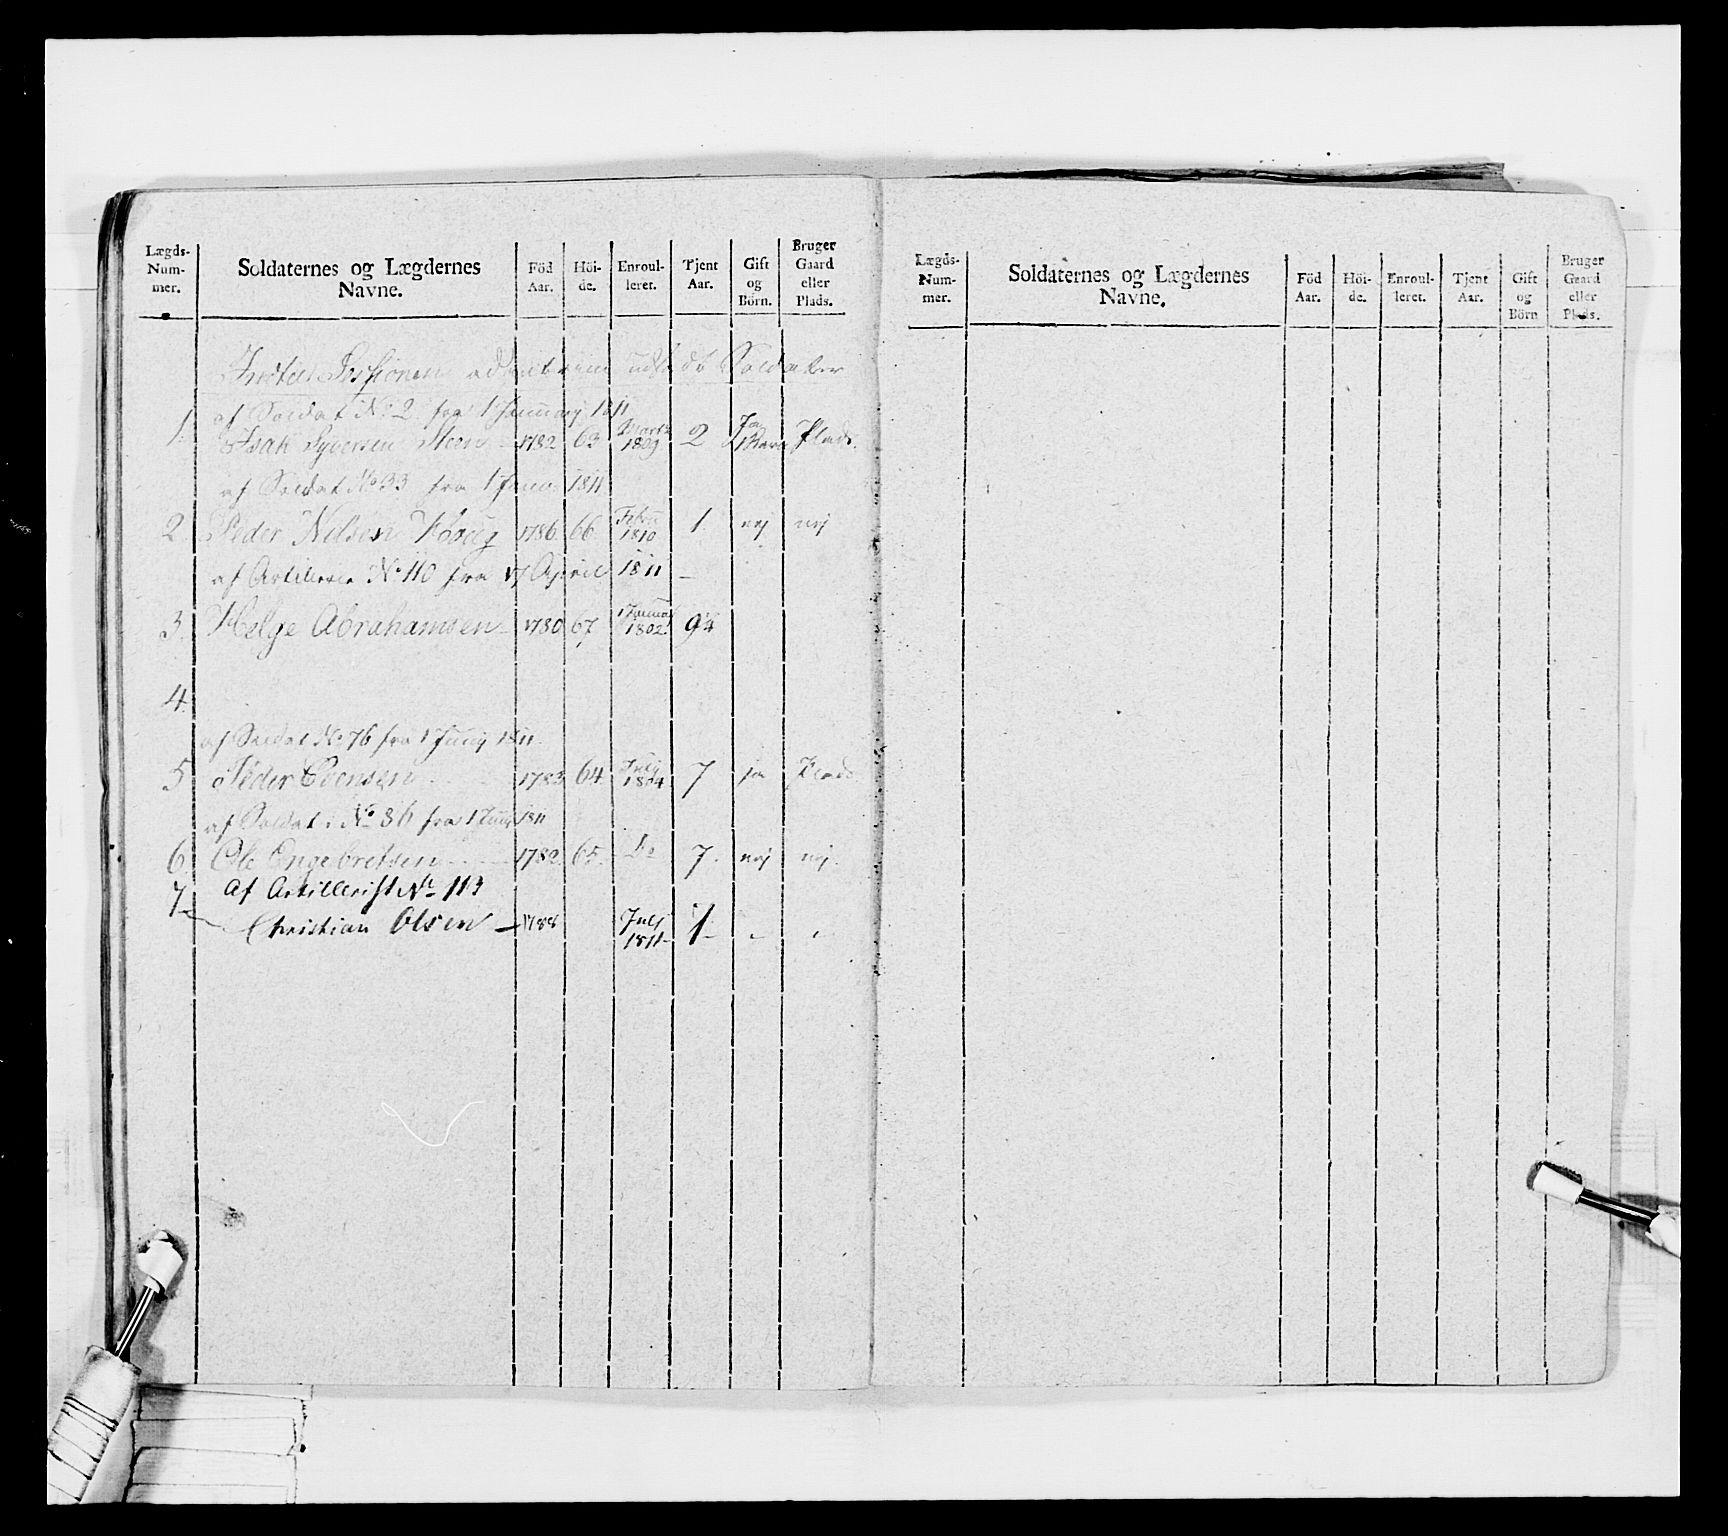 Lægds-Num-mer. Soldaternes og Lægdernes Navne. Föd Aar. Höi-de. Enroul-leret. Tjent Aar. Gift og Börn. Bruger Gaard eller Plads.
Sessionen Soldater
af Soldat No 2 fra 1 Januarj 1811
1. Isak Syversen Steen 1782 63 Marts 1809 2 Ja Plads.
af Soldat No 33 fra 1 Janu 1811
2. Peder Nilsen 1786 66 Febru 1810 1 nej nej
af Artillerie No 110 fra 17 April 1811
3. Helge Abrahamsen 1780 67 Januar 1802 9¼
4.
af Soldat No 76 fra 1 Junij 1811
5 Peder Evensen 1783 64 Julj 1804 7 ja Plads
af Soldat No 86 fra 1 Junj 1811
6. Ole Engebretsen 1782 65 Do 7. nej nej.
7 Af Artillerist No 113
Christian Olsen 1788 Julj 1811 1
Lægds-Num-mer. Soldaternes og Lægdernes Navne. Föd Aar. Höi-de. Enroul-leret. Tjent Aar. Gift og Börn Bruger Gaard eller Plads.